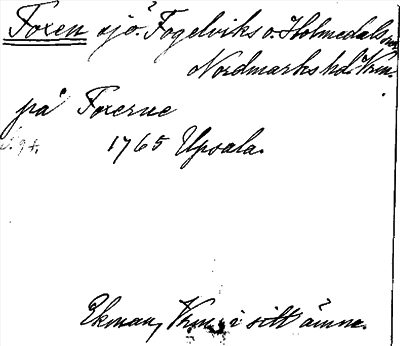 Foxen sjö. Fogelviks o. Holmedals snr
Nordmarks hd. Vrm.
på Foxerne
1765 Upsala.
Ekman, Vrm. i sitt ämne.